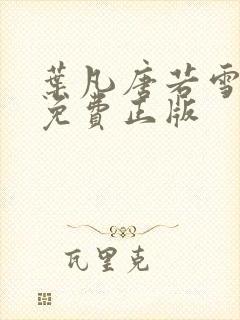 葉凡唐若雪
免費正版
瓦里克